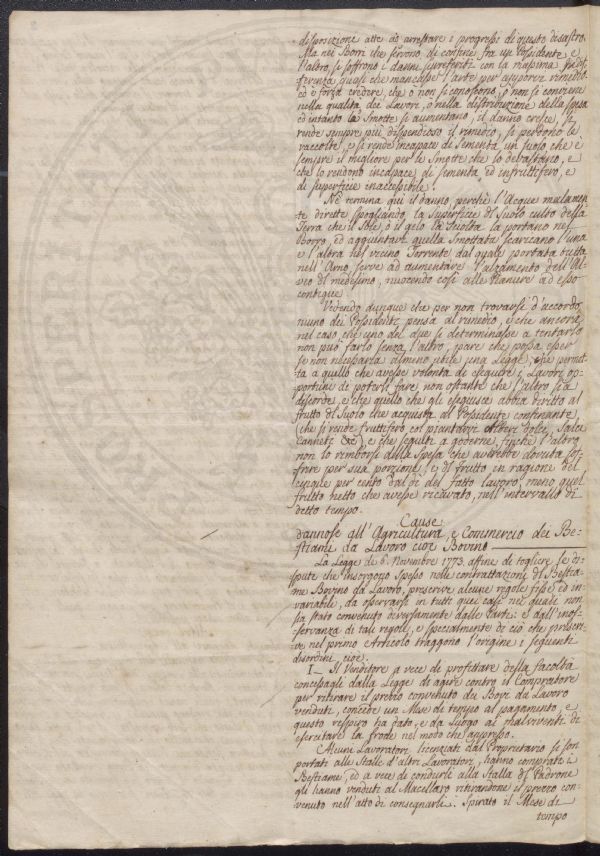 disposizione atte ad arrestare i progressi di questo disastro.
Ma nei Borri che servono di confine fra un Possidente, e
l'altro, si soffrono i danni surreferiti con la massima indif-
ferenza, quasi che mancasse l'arte per apporvi rimedio,
ed è forza credere, che o non si conoscono, o non si conviene
nella qualità dei Lavori, o nella distribuzione della spesa
ed intanto la Smotte si aumentano, il danno cresce, si
rende sempre più dispendioso il rimedio, si perdono le
raccolte, e si rende incapace di sementa un suolo, che è
sempre il migliore per le Smotte che lo devastano, e
che lo rendono incapace di sementa ed infruttifero, e
di superficie inaccessibile.
Nè termina qui il danno, perchè l'Acque malamen-
te dirette spogliando la superficie del Suolo culto della
Terra che il Sole, o il gelo ha sciolta la portano nel
Borro, ed aggiuntavi quella Smottata scaricano l'una
e l'altra nel vicino Torrente, dal quale portata tutta
nell'Arno, serve ad aumentare l'alzamento dell'Al-
veo del medesimo, nuocendo così alle Pianure ad esso
contigue.
Vedendo dunque che per non trovarsi d'accordo
niuno dei Possidenti pensa al rimedio, e che ancora
nel caso, che uno dei due si determinasse a tentarlo
non può farlo senza l'altro, pare che possa esser
se non necessaria almeno utile una Legge, che permet-
ta a quello che avesse volontà di eseguire i Lavori op-
portuni di potersi fare non ostante che l'altro sia
discorde, e che quello che gli eseguisce abbia diritto al
frutto del Suolo che acquista al Possidente confinante,
(che si rende fruttifero col piantarvi Alberi dolci, Salci
Canneti &c) e che seguiti a goderne, finchè l'altro
non lo rimborsi della Spesa che avrebbe dovuta sof-
frire per sua porzione, e del frutto in ragione del
cinque per cento dal dì del fatto lavoro, meno quel
frutto netto che avesse ricavato, nell'intervallo di
detto tempo.
Cause
dannose all'Agricoltura, e Commercio dei Be-
stiami da Lavoro cioè Bovino
La Legge de 6. Novembre 1773. affine di togliere le di-
spute che insorgono spesso nelle contrattazioni del Bestia-
me Bovino da Lavoro, prescrive alcune regole fisse ed in-
variabili, da osservarsi in tutti quei casi ne' quali non
sia stato convenuto diversamente dalle Parti: e dall'inos-
servanza di tali regole, e specialmente di ciò che prescri-
ve nel primo Articolo traggono l'origine i seguenti
disordini cioè:
I_ Il Venditore a vece di profittare della facoltà
concessagli dalla Legge di agire contro il Compratore
per ritirare il prezzo convenuto dei Bovi da Lavoro
venduti, concede un Mese di tempo al pagamento, e
questo respiro ha dato, e dà luogo ai malviventi di
esercitare la frode nel modo che appresso.
Alcuni Lavoratori licenziati dal Proprietario si son
portati alle Stalle d'altri Lavoratori, hanno comprato il
Bestiame, ed a vece di condurli alla Stalla del Padrone
gli hanno venduti al Macellaro ritirandone il prezzo con-
venuto nell'atto di consegnarli: Spirato il Mese di
tempo